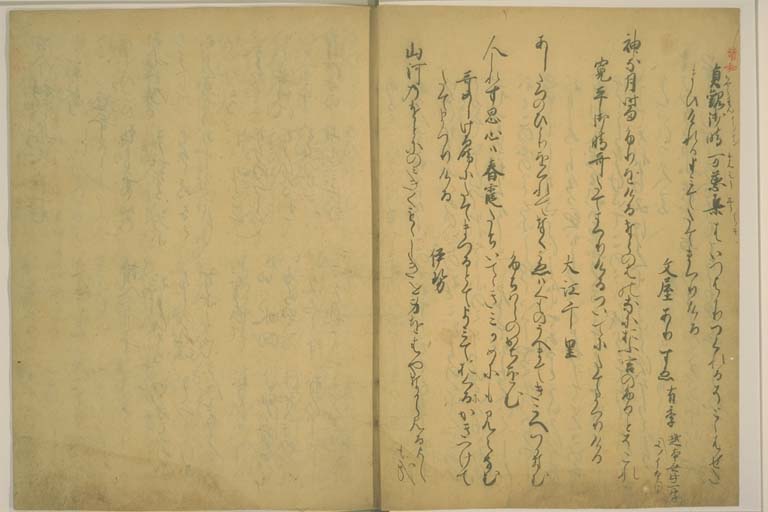 貞観御時万葉集はいつはかりつくれるそととはせた
まひけれはよみてたてまつりける
文屋ありすゑ 有季
神な月時雨ふりをけるならのはの名におふ宮のふることそこれ
寛平御時哥たてまつりけるついてにたてまつりける
大江千里
あしたつのひとりをくれてなくこゑは雲のうへまてきこえつかなむ
ふちはらのかちをむ
人しれす思心は春霞たちいてゝきみかめにも見えなむ
哥めしける時にたてまつるとてよみておくにかきつけて
たてまつりける
伊勢
山河のをとにのみきくもゝしきを身をはやなから見るよし
もかな